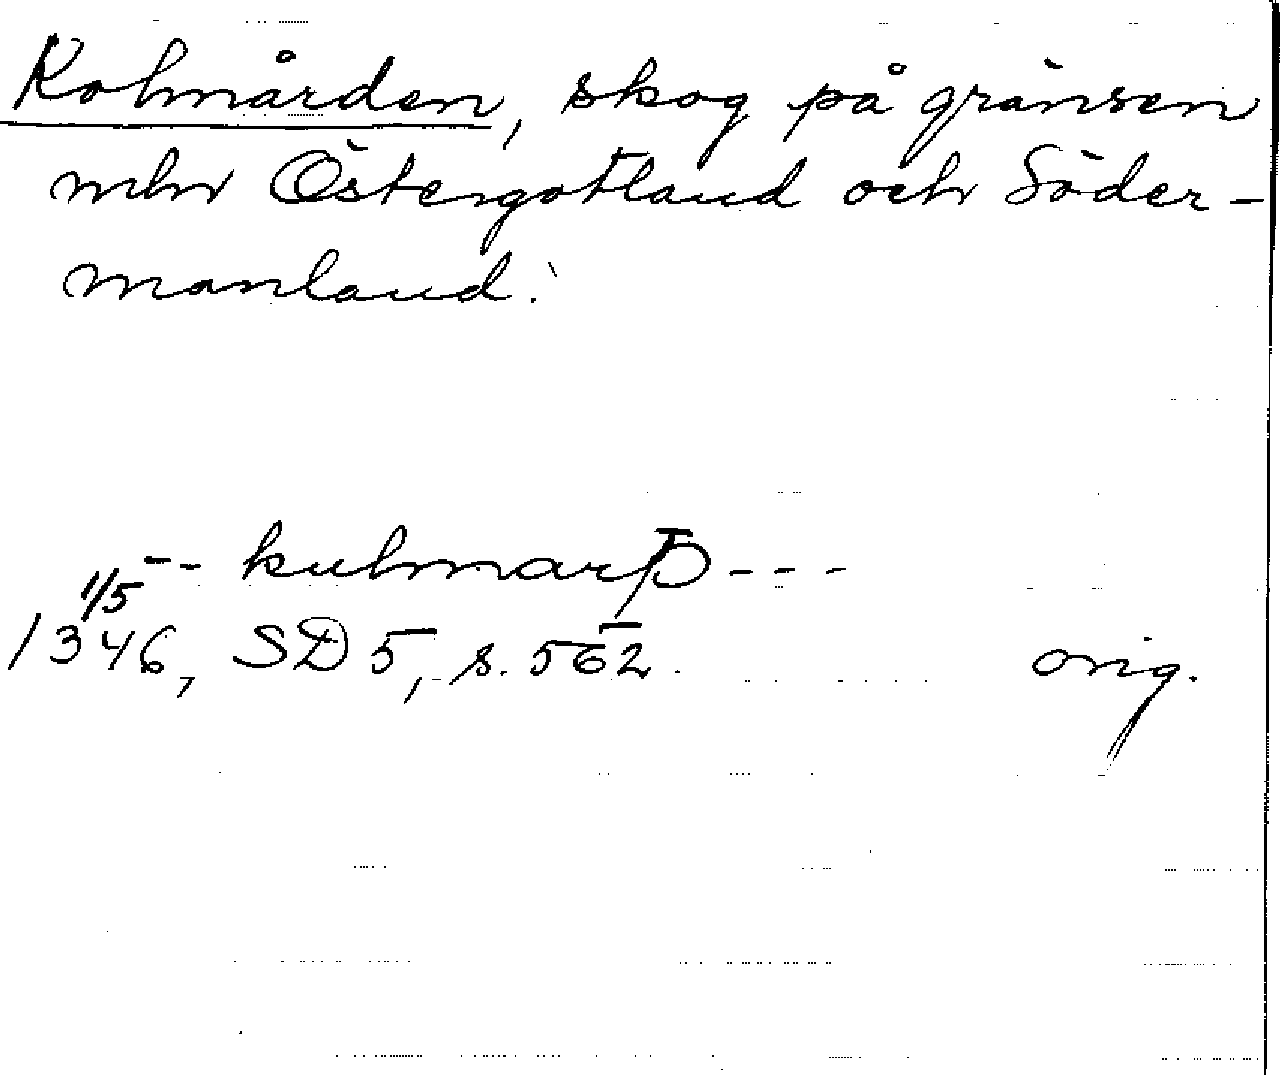 Kolmården, skog på gränsen
mln Östergötland och Söder-
manland.
-- kulmarþ ---
1/5
1346, SD 5, s. 562. orig.